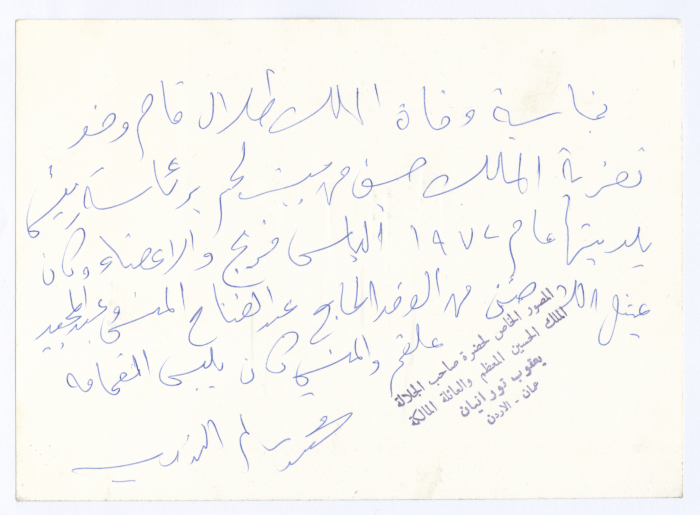 بمناسبة وفاة الملك طلال قام وفد
تعزية الملك حسين من بيت لحم برئاسة رئيس
بلديتها عام ١٩٧٢ الياس فريج والاعضاء وكان
يمثل من الوفد عبد الفتاح المنسي وعبد المجيد
علقم والمنسي كان يلبس القمبازه
المصور الخاص لحضرة صاحب الجلالة
الملك الحسين المعظم والعائلة المالكة
يعقوب تورانيان
عمان - الاردن